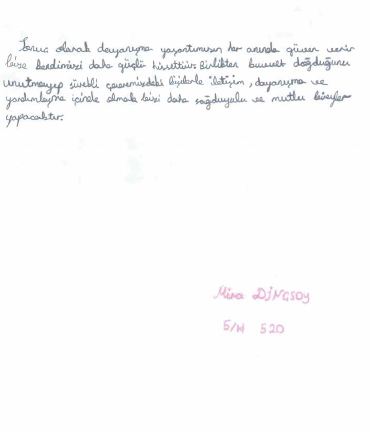 Sonuç olarak dayanışma yaşantımızın her anında güven verir
bize kendimizi daha güçlü hissettirir. Birlikten kuvvet doğduğunu
unutmayıp sürekli çevremizdeki kişilerle iletişim, dayanışma ve
yardımlaşma içinde olmak bizi daha sağduyulu ve mutlu bireyler
yapacaktır.
Mira DİNÇSOY
5/H 520